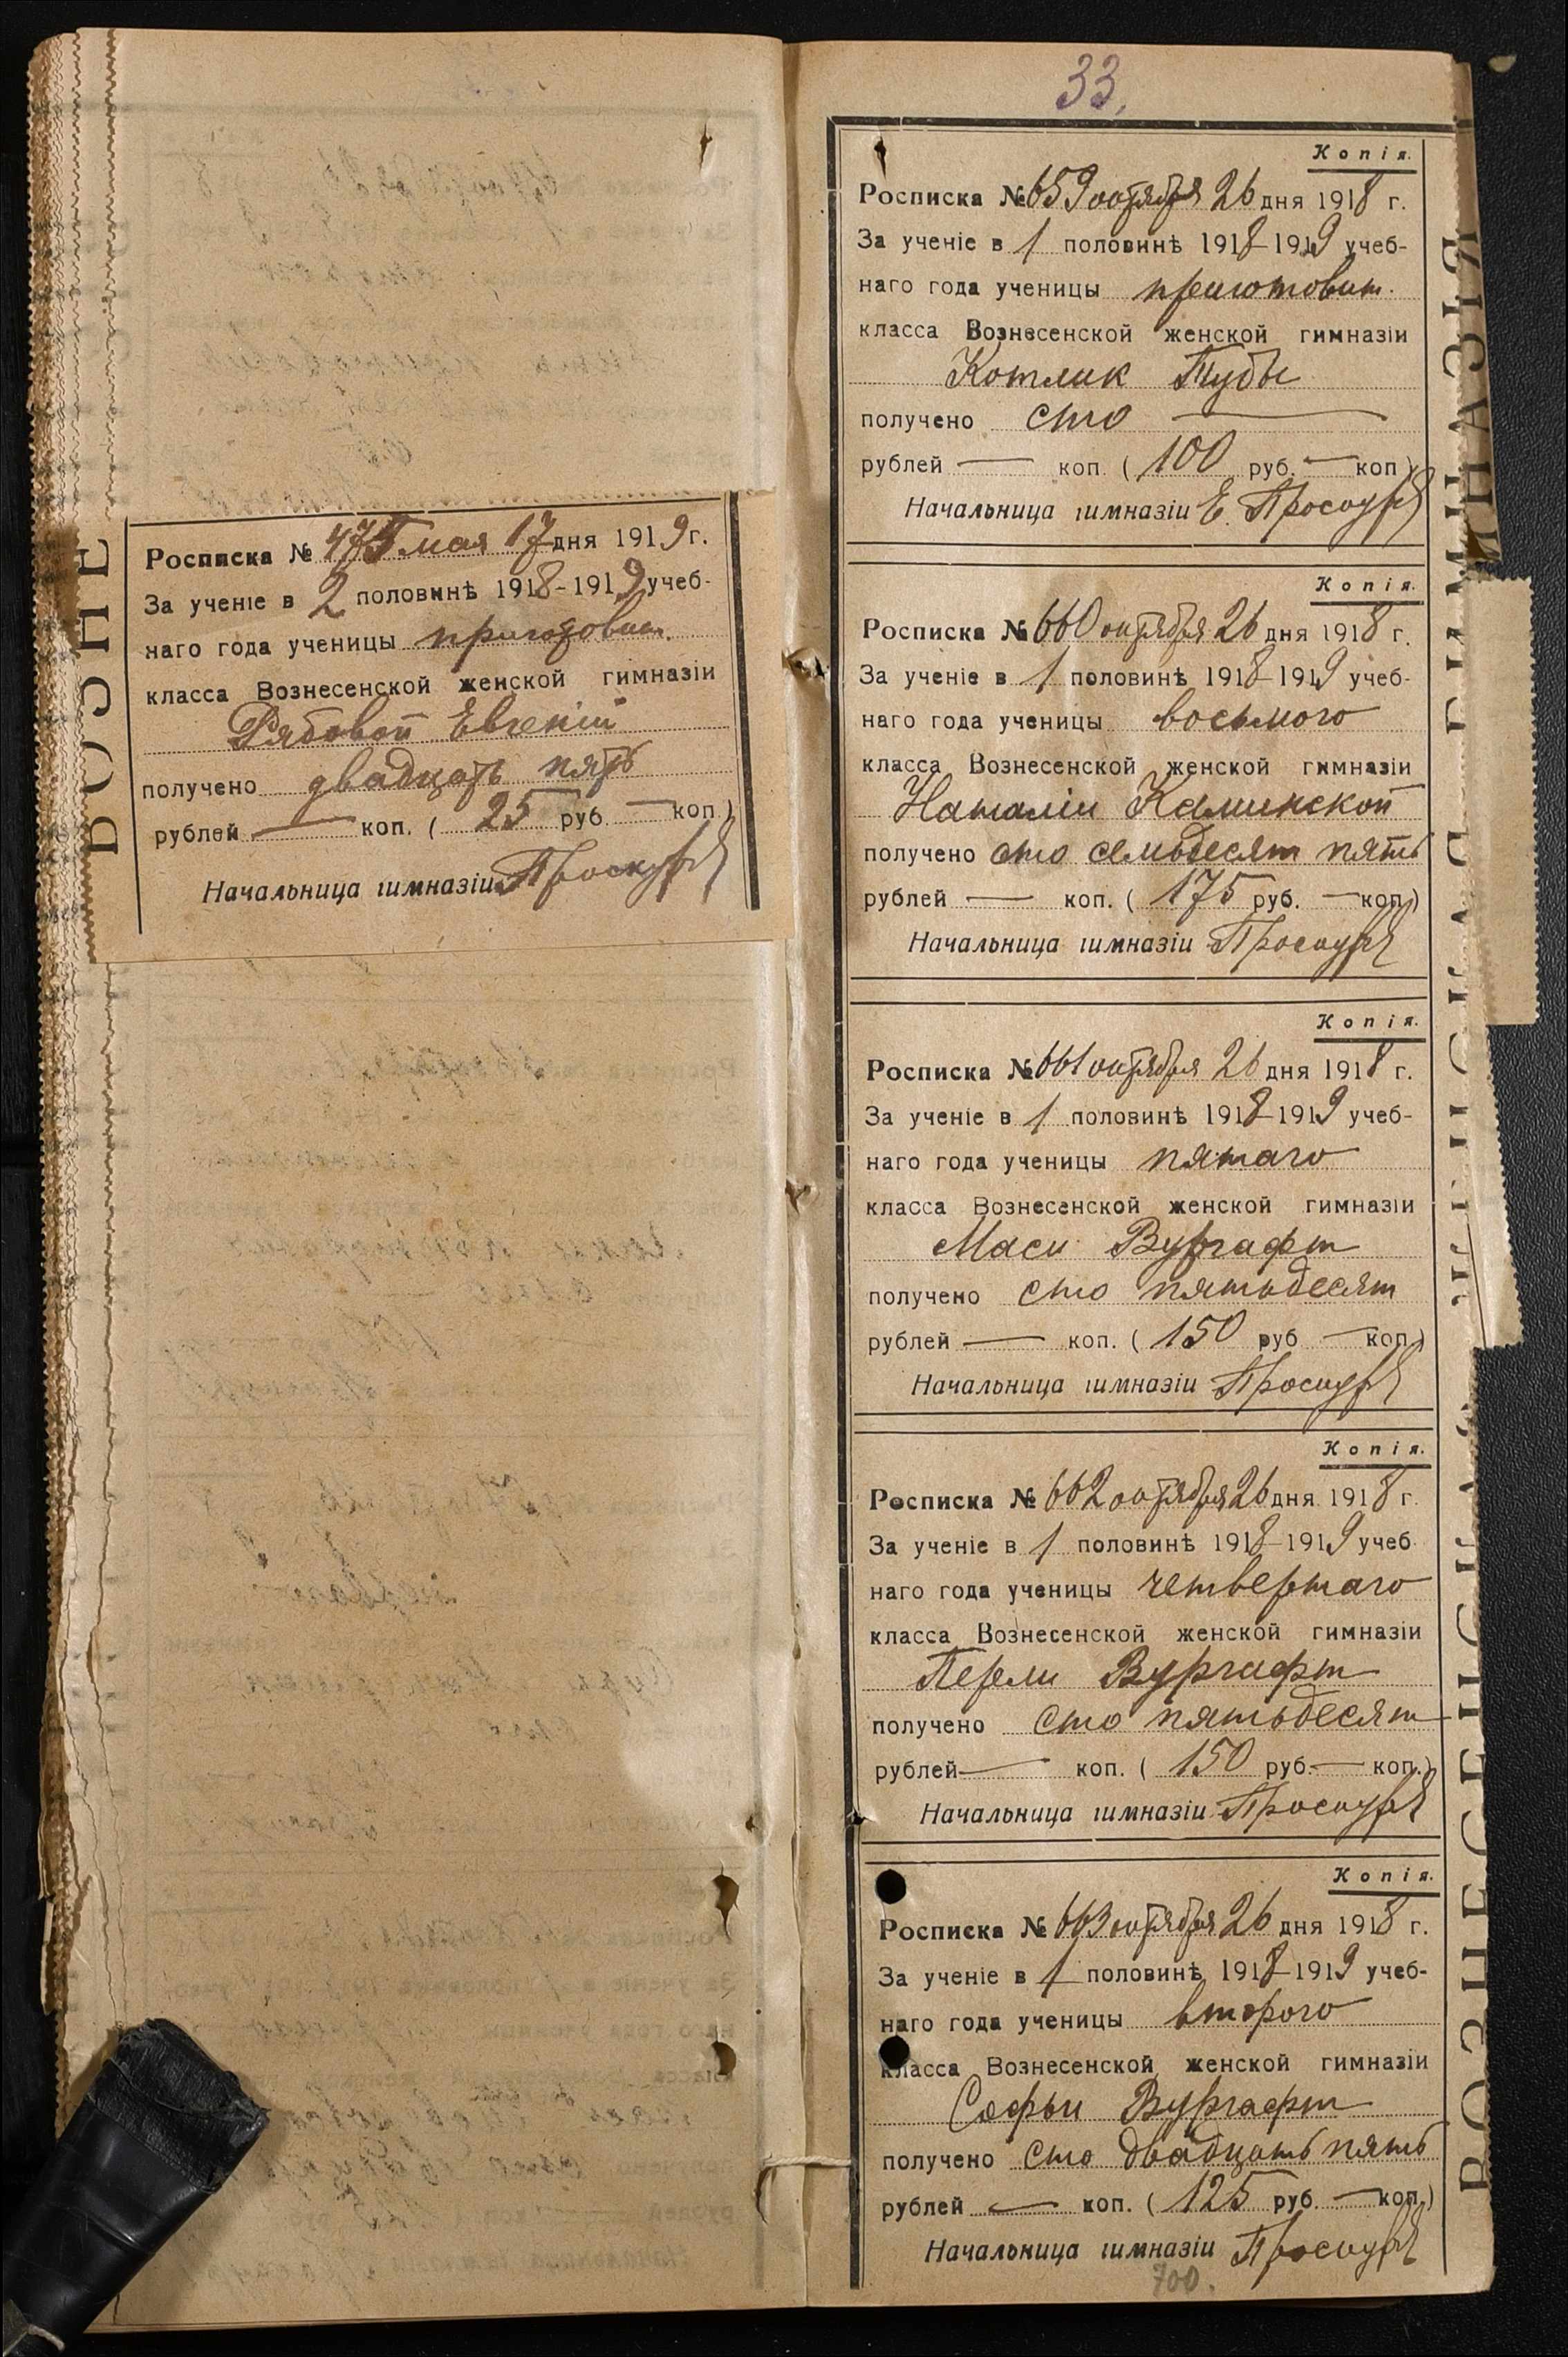 ВОЗНЕ
Росписка № 475 мая 17 дня 1919 г.
За ученіе в 2 половинѣ 1918-1919 учеб-
наго года ученицы приготовит.
класса Вознесенской женской гимназіи
Рябовой Евгеніи
получено двадцать пять
рублей — коп. ( 25 руб. — коп.)
Начальница гимназіи
33.
Копія.
Росписка № 659 октября 26 дня 1918 г.
За ученіе в 1 половинѣ 1918-1919 учеб-
наго года ученицы приготовит.
класса Вознесенской женской гимназіи
Котлик Тубы
получено сто —
рублей — коп. ( 100 руб. — коп.)
Начальница гимназіи Е.
Копія.
Росписка № 660 октября 26 дня 1918 г.
За ученіе в 1 половинѣ 1918-1919 учеб-
наго года ученицы восьмого
класса Вознесенской женской гимназіи
Наталіи Каминской
получено сто семьдесят пять
рублей — коп. ( 175 руб. — коп.)
Начальница гимназіи
Копія.
Росписка № 661 октября 26 дня 1918 г.
За ученіе в 1 половинѣ 1918-1919 учеб-
наго года ученицы пятаго
класса Вознесенской женской гимназіи
Маси Вургафт
получено сто пятьдесят
рублей — коп. ( 150 руб — коп.)
Начальница гимназіи
Копія.
Росписка № 662 октября 26 дня 1918 г.
За ученіе в 1 половинѣ 1918-1919 учеб
наго года ученицы четвертаго
класса Вознесенской женской гимназіи
Перли Вургафт
получено сто пятьдесят
рублей — коп. ( 150 руб. — коп.)
Начальница гимназіи
Копія.
Росписка № 663 октября 26 дня 1918 г.
За ученіе в 1 половинѣ 1918-1919 учеб-
наго года ученицы второго
класса Вознесенской женской гимназіи
Софьи Вургафт
получено сто двадцать пять
рублей — коп. ( 125 руб. — коп.)
Начальница гимназіи
700.